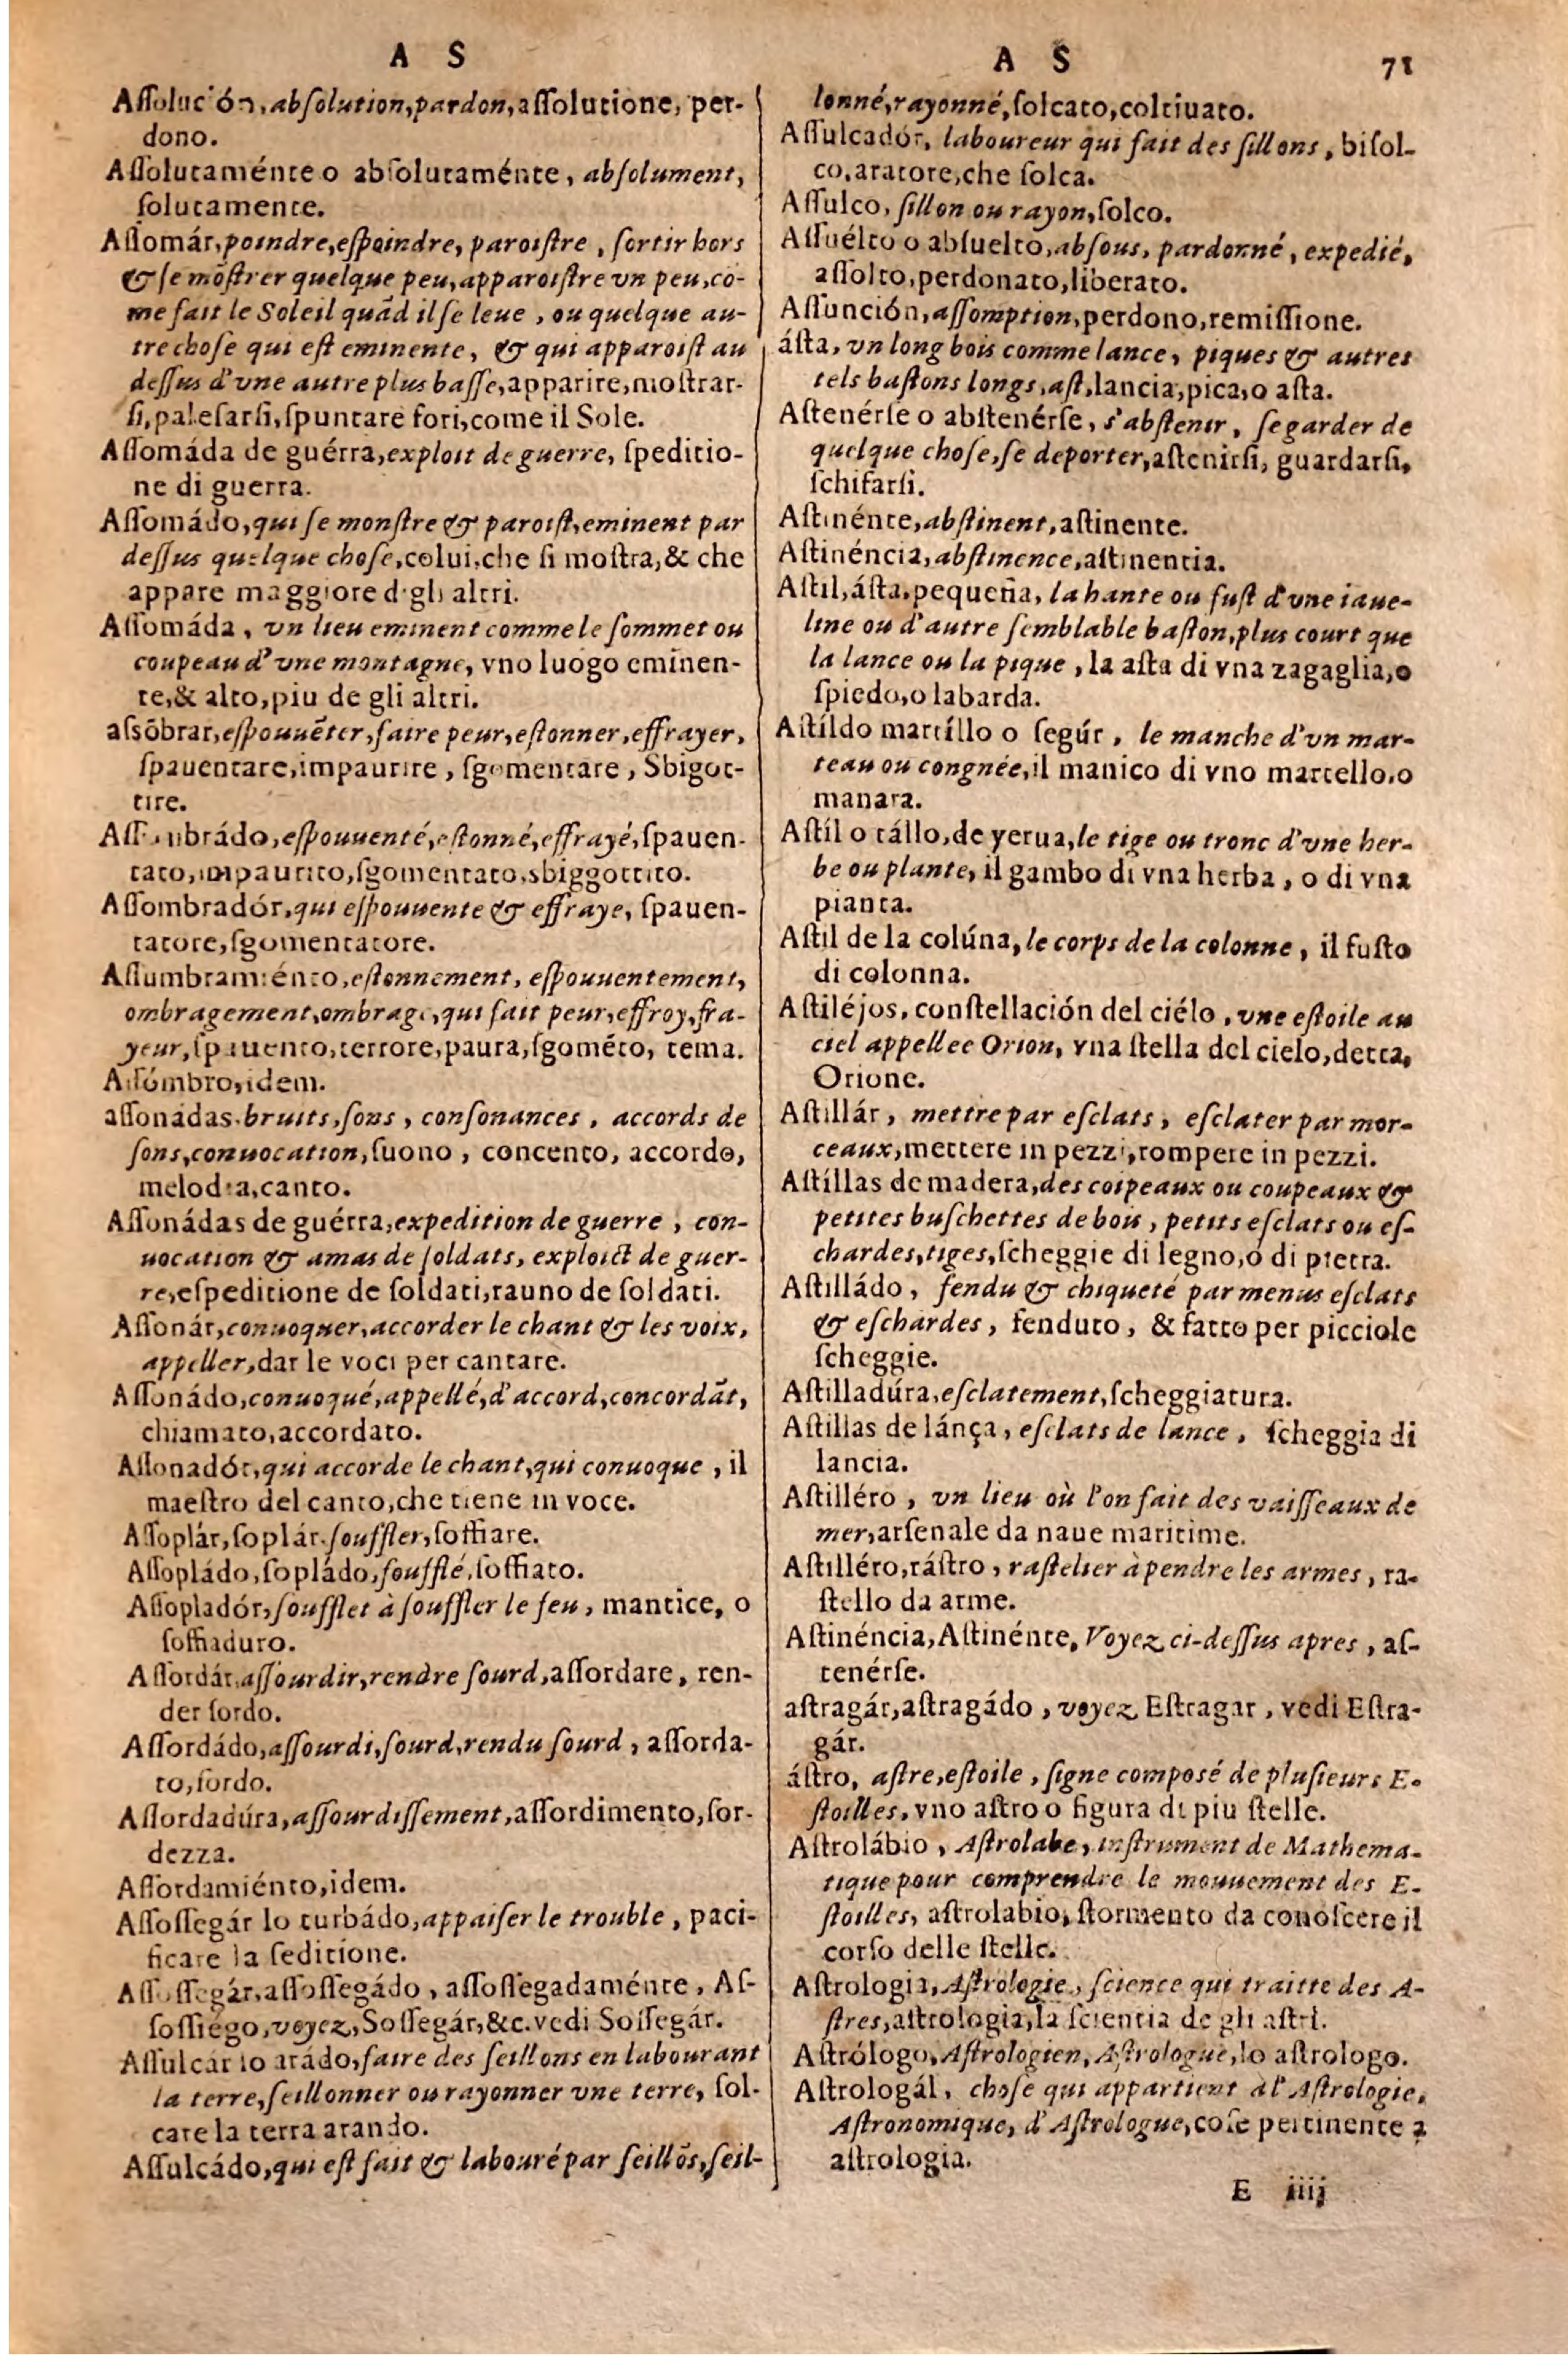 A S
Aſſolución, abſolution, pardon, aſſolutione, per-
dono.
Aſſolutaménte o abſolutaménte, abſolument,
ſolutamente.
Aſſomár, poindre, eſpoindre, paroiſtre, ſortir hors
& ſe mõſtrer quelque peu, apparoiſtre vn peu, co-
me fait le Soleil quãd il ſe leue, ou quelque au-
tre choſe qui eſt eminente, & qui apparoiſt au
deſſus d'vne autre plus baſſe, apparire, moſtrar-
ſi, paleſarſi, ſpuntare fori, come il Sole.
Aſſomáda de guérra, exploit de guerre, ſpeditio-
ne di guerra.
Aſſomádo, qui ſe monſtre & paroiſt, eminent par
deſſus quelque choſe, colui, che ſi moſtra, & che
appare maggiore d gli altri.
Aſſomáda, vn lieu eminent comme le ſommet ou
coupeau d'vne montagne, vno luogo eminen-
te, & alto, piu de gli altri.
aſsõbrar, eſpouuẽter, faire peur, eſtonner, effrayer,
ſpauentare, impaurire, ſgomentare, Sbigot-
tire.
Aſſombrádo, eſpouuenté, eſtonné, effrayé, ſpauen-
tato, impaurito, ſgomentato, sbiggottito.
Aſſombradór, qui eſpouuente & effraye, ſpauen-
tatore, ſgomentatore.
Aſſumbramiénto, eſtonnement, eſpouuentement,
ombragement, ombrage, qui fait peur, effroy, fra-
yeur, ſpauento, terrore, paura, ſgomẽto, tema.
Aſſómbro, idem.
aſſonádas. bruits, ſons, conſonances, accords de
ſons, conuocation, ſuono, concento, accordo,
melodia, canto.
Aſſonádas de guérra, expedition de guerre, con-
uocation & amas de ſoldats, exploict de guer-
re, eſpeditione de ſoldati, rauno de ſoldati.
Aſſonár, conuoquer, accorder le chant & les voix,
appeller, dar le voci per cantare.
Aſſonádo, conuoqué, appellé, d'accord, concordãt,
chiamato, accordato.
Aſſonadór, qui accorde le chant, qui conuoque, il
maeſtro del canto, che tiene in voce.
Aſſoplár, ſoplár. ſouffler, ſoffiare.
Aſſopládo, ſopládo, ſoufflé, ſoffiato.
Aſſopladór, ſoufflet à ſouffler le feu, mantice, o
ſoffiaduro.
Aſſordár, aſſourdir, rendre ſourd, aſſordare, ren-
der ſordo.
Aſſordádo, aſſourdi, ſourd, rendu ſourd, aſſorda-
to, ſordo.
Aſſordadúra, aſſourdiſſement, aſſordimento, ſor-
dezza.
Aſſordamiénto, idem.
Aſſoſſegár lo turbádo, appaiſer le trouble, paci-
ficare la ſeditione.
Aſſoſſegár, aſſoſſegádo, aſſoſſegadaménte, Aſ-
ſoſſiégo, voyez, Soſſegár, &c. vedi Soſſegár.
Aſſulcár lo arádo, faire des ſeillons en labourant
la terre, ſeillonner ou rayonner vne terre, ſol-
care la terra arando.
Aſſulcádo, qui eſt fait & labouré par ſeillõs, ſeil-
A S 71
lonné, rayonné, ſolcato, coltiuato.
Aſſulcadór, laboureur qui fait des ſillons, bifol-
co, aratore, che ſolca.
Aſſulco, ſillon ou rayon, ſolco.
Aſſuélto o abſuelto, abſous, pardonné, expedié,
aſſolto, perdonato, liberato.
Aſſunción, aſſomption, perdono, remiſſione.
áſta, vn long bois comme lance, piques & autres
tels baſtons longs, aſt, lancia, pica, o aſta.
Aſtenérſe o abſtenérſe, s'abſtenir, ſe garder de
quelque choſe, ſe deporter, aſtenirſi, guardarſi,
ſchifarſi.
Aſtinénte, abſtinent, aſtinente.
Aſtinéncia, abſtinence, aſtinentia.
Aſtil, áſta, pequeña, la hante ou fuſt d'vne iaue-
line ou d'autre ſemblable baſton, plus court que
la lance ou la pique, la aſta di vna zagaglia, o
ſpiedo, o labarda.
Aſtíldo martíllo o ſegúr, le manche d'vn mar-
teau ou congnée, il manico di vno martello, o
manara.
Aſtíl o tállo, de yerua, le tige ou tronc d'vne her-
be ou plante, il gambo di vna herba, o di vna
pianta.
Aſtil de la colúna, le corps de la colonne, il fuſto
di colonna.
Aſtiléjos, conſtellación del ciélo, vne eſtoile au
ciel appellee Orion, vna ſtella del cielo, detta,
Orione.
Aſtillár, mettre par eſclats, eſclater par mor-
ceaux, mettere in pezzi, rompere in pezzi.
Aſtíllas de madera, des coipeaux ou coupeaux &
petites buſchettes de bois, petits eſclats ou eſ-
chardes, tiges, ſcheggie di legno, o di pietra.
Aſtilládo, fendu & chiqueté par menus eſclats
& eſchardes, fenduto, & fatto per picciole
ſcheggie.
Aſtilladúra, eſclatement, ſcheggiatura.
Aſtillas de lánça, eſclats de lance, ſcheggia di
lancia.
Aſtilléro, vn lieu où l'on fait des vaiſſeaux de
mer, arſenale da naue maritime.
Aſtilléro, ráſtro, raſtelier à pendre les armes, ra-
ſtello da arme.
Aſtinéncia, Aſtinénte, Voyez ci-deſſus apres, aſ-
tenérſe.
aſtragár, aſtragádo, voyez Eſtragar, vedi Eſtra-
gár.
áſtro, aſtre, eſtoile, ſigne composé de pluſieurs E-
ſtoilles, vno aſtro o figura di piu ſtelle.
Aſtrolábio, Aſtrolabe, inſtrument de Mathema-
tique pour comprendre le mouuement des E-
ſtoilles, aſtrolabio, ſtormento da conoſcere il
corſo delle ſtelle.
Aſtrologia, Aſtrologie, ſcience qui traitte des A-
ſtres, aſtrologia, la ſcientia de gli aſtri.
Aſtrólogo, Aſtrologien, Aſtrologue, lo aſtrologo.
Aſtrologál, choſe qui appartient à l'Aſtrologie,
Aſtronomique, d'Aſtrologue, coſe pertinente a
aſtrologia.
E iiij